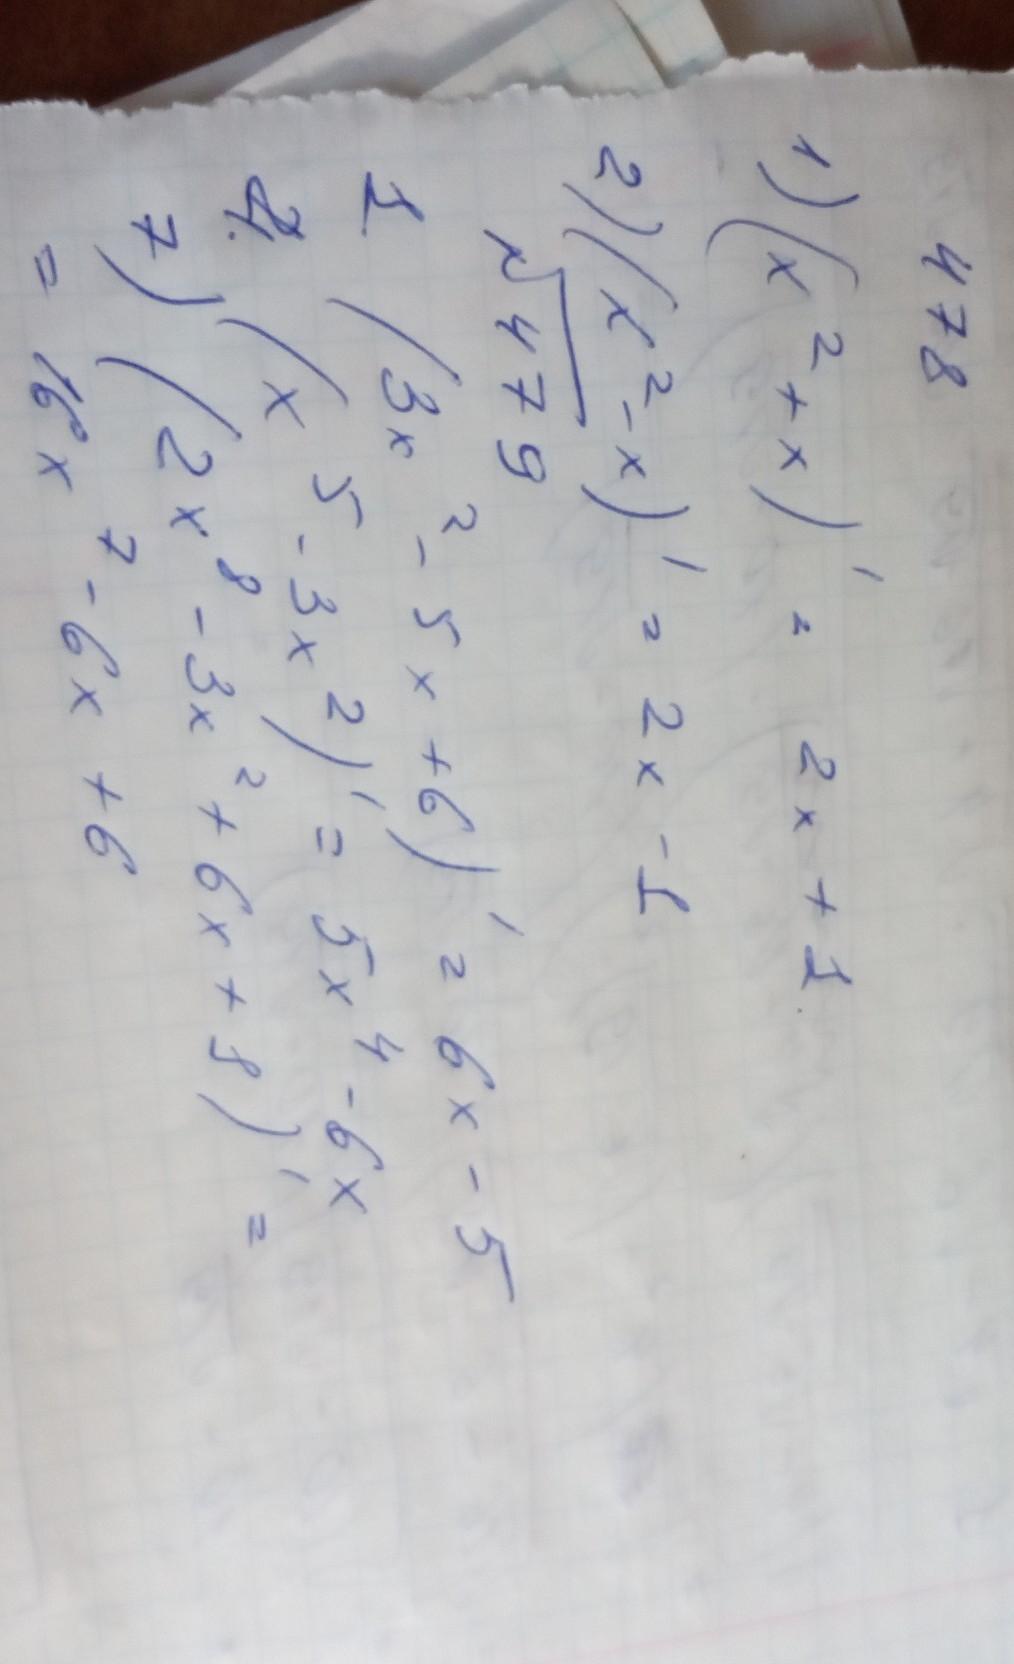 478
1) (x² + x)' = 2x + 1
2) (x² - x)' = 2x - 1
√479
1 (3x² - 5x + 6)' = 6x - 5
2. (x⁵ - 3x²)' = 5x⁴ - 6x
7) (2x⁸ - 3x² + 6x + 8)' =
= 16x⁷ - 6x + 6